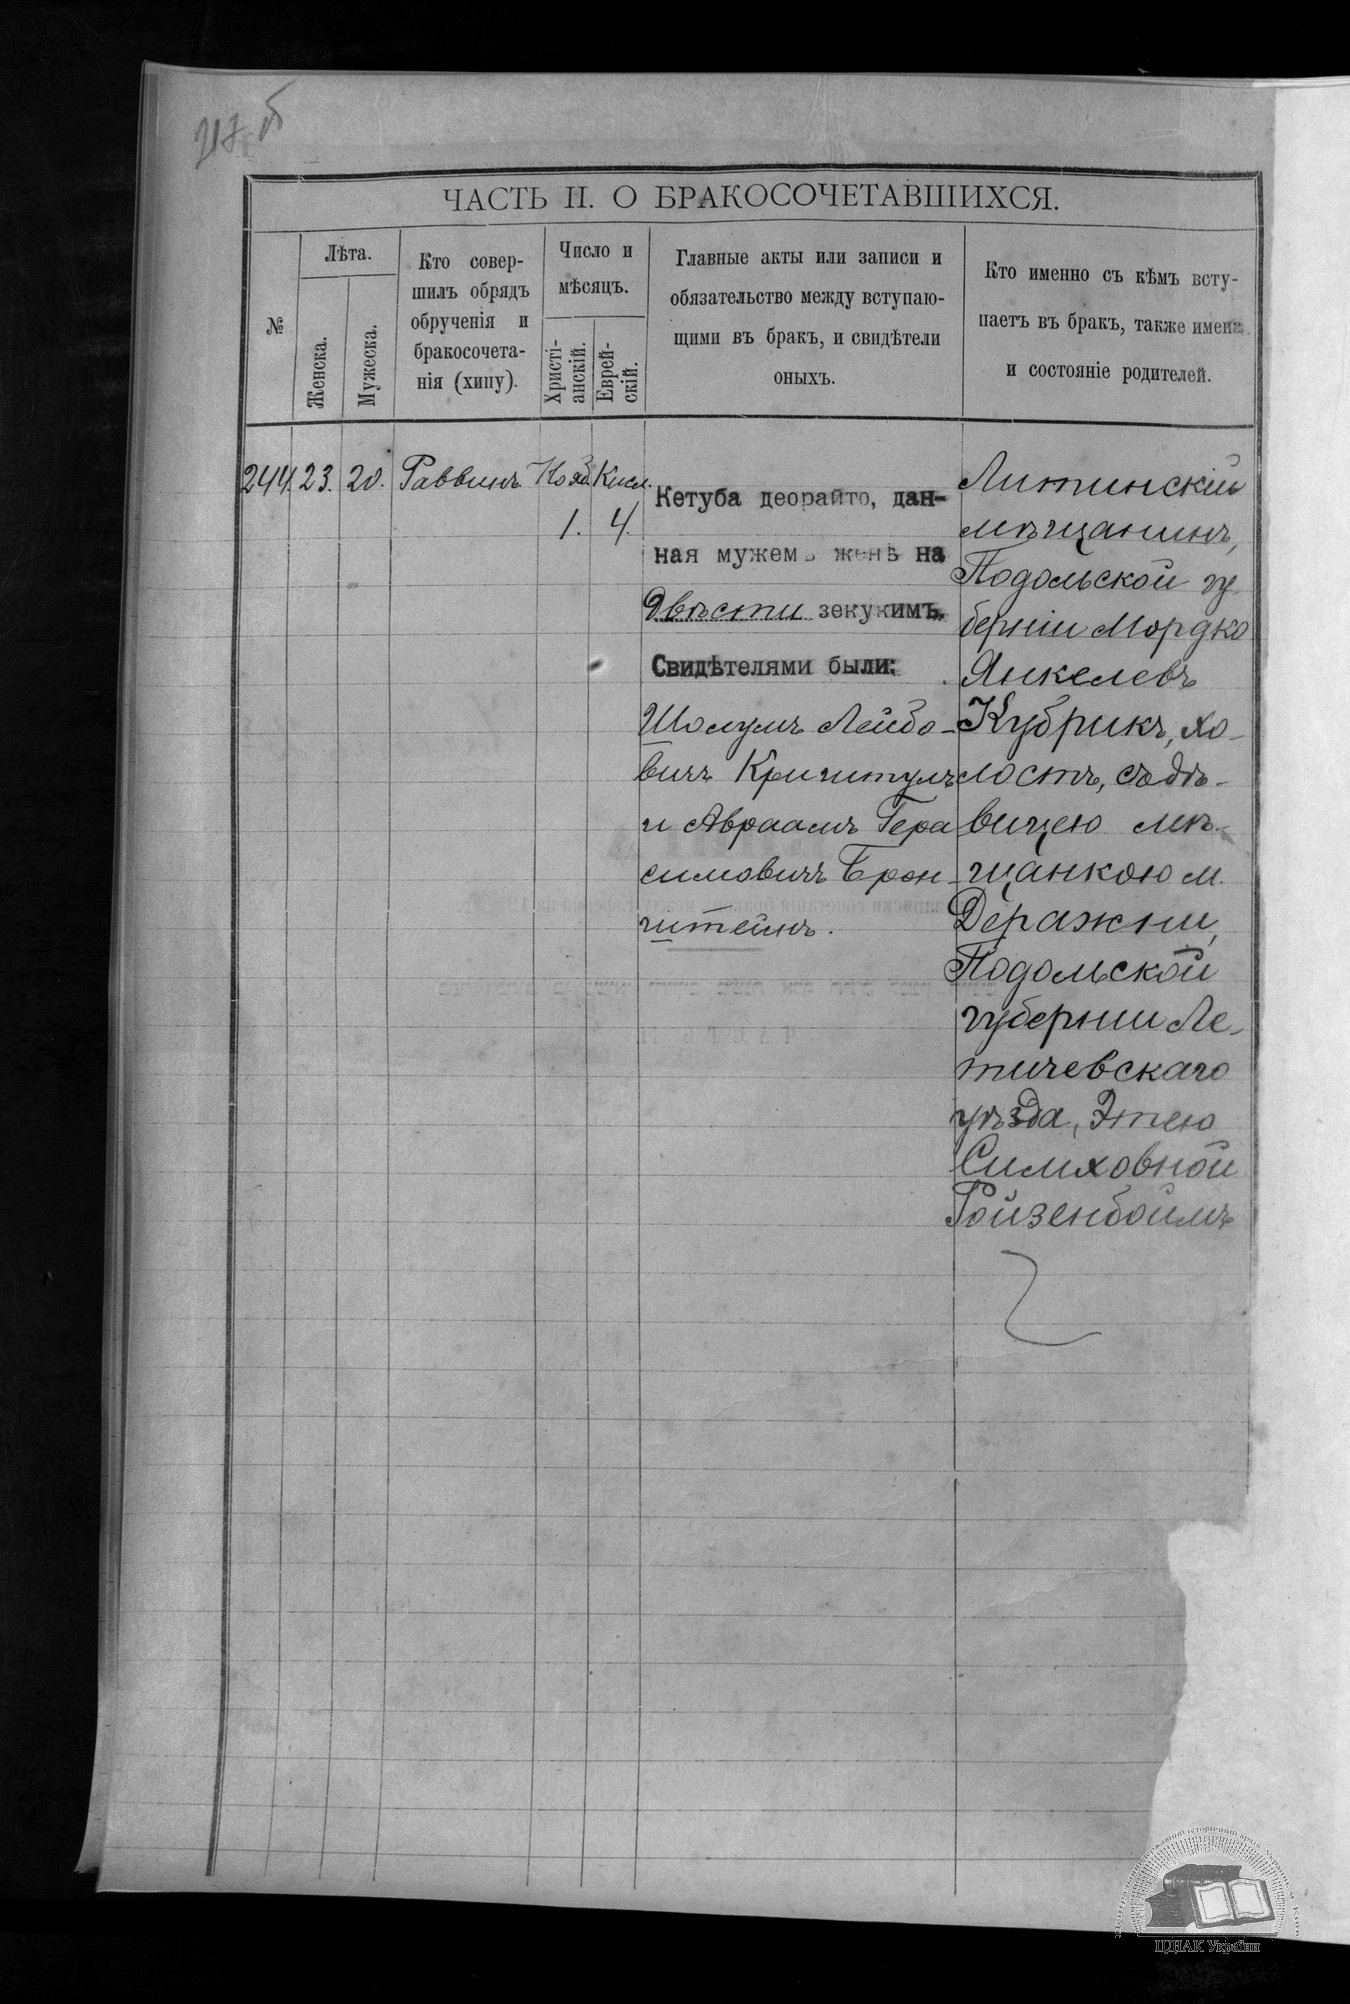 217 об
ЧАСТЬ II. О БРАКОСОЧЕТАВШИХСЯ.
№
Лѣта.
Женска.
Мужеска.
Кто совер-
шилъ обрядъ
обрученія и
бракосочета-
нія (хипу).
Число и
мѣсяцъ.
Христі-
анскій.
Еврей-
скій.
Главные акты или записи и
обязательство между вступаю-
щими въ бракъ, и свидѣтели
оныхъ.
Кто именно съ кѣмъ всту-
паетъ въ бракъ, также имена
и состояніе родителей.
244. 23. 20. Раввинъ Нояб. Кисл.
1. 4.
Кетуба деорайто, дан-
ная мужемъ женѣ на
Двѣсти зекукимъ.
Свидѣтелями были:
Шолумъ Лейбо-
вичъ Криштулъ
и Авраамъ Гера
симовичъ Брон-
штейнъ.
Литинскій
мѣщанинъ,
Подольской гу
берніи Мордко
Янкелевъ
Кубрикъ, хо-
лостъ, съ дѣ-
вицею мѣ-
щанкою м.
Деражни,
Подольской
губерніи Ле-
тичевскаго
уѣзда, Этею
Симховной
Ройзенбоймъ
ЦДІАК України